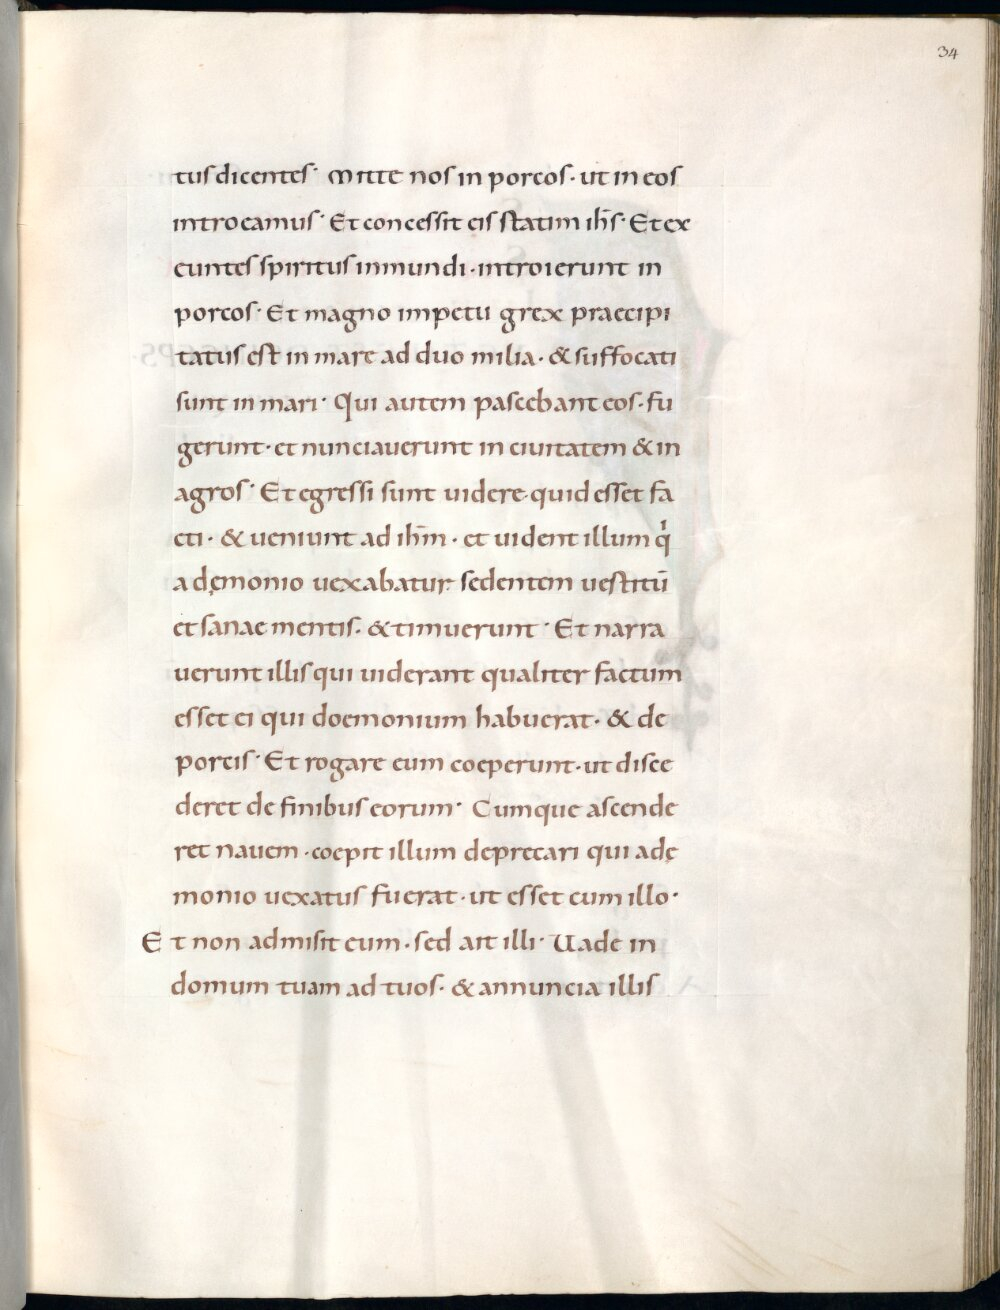 34
tus dicentes· Mitte nos in porcos· ut in eos
introeamus· Et concessit eis statim ih̅s· Et ex
euntes spiritus inmundi· introierunt in
porcos· Et magno impetu grex praecipi
tatus est in mare ad duo milia· & suffocati
sunt in mari· Qui autem pascebant eos· fu
gerunt· et nunciauerunt in ciuitatem & in
agros· Et egressi sunt uidere quid esset fa
cti· & ueniunt ad ih̅m· et uident illum qͥ
a dęmonio uexabatur· sedentem uestitū
et sanae mentis· & timuerunt· Et narra
uerunt illis qui uiderant qualiter factum
esset ei qui doemonium habuerat· & de
porcis· Et rogare eum coeperunt· ut disce
deret de finibus eorum· Cumque ascende
ret nauem· coepit illum deprecari qui a dę
monio uexatus fuerat· ut esset cum illo·
Et non admisit eum· sed ait illi· Uade in
domum tuam ad tuos· & annuncia illis